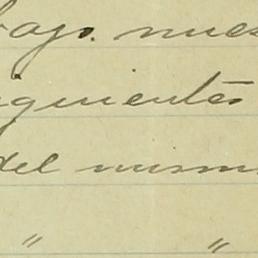 bajo. nues
iguientes
del mism
" "